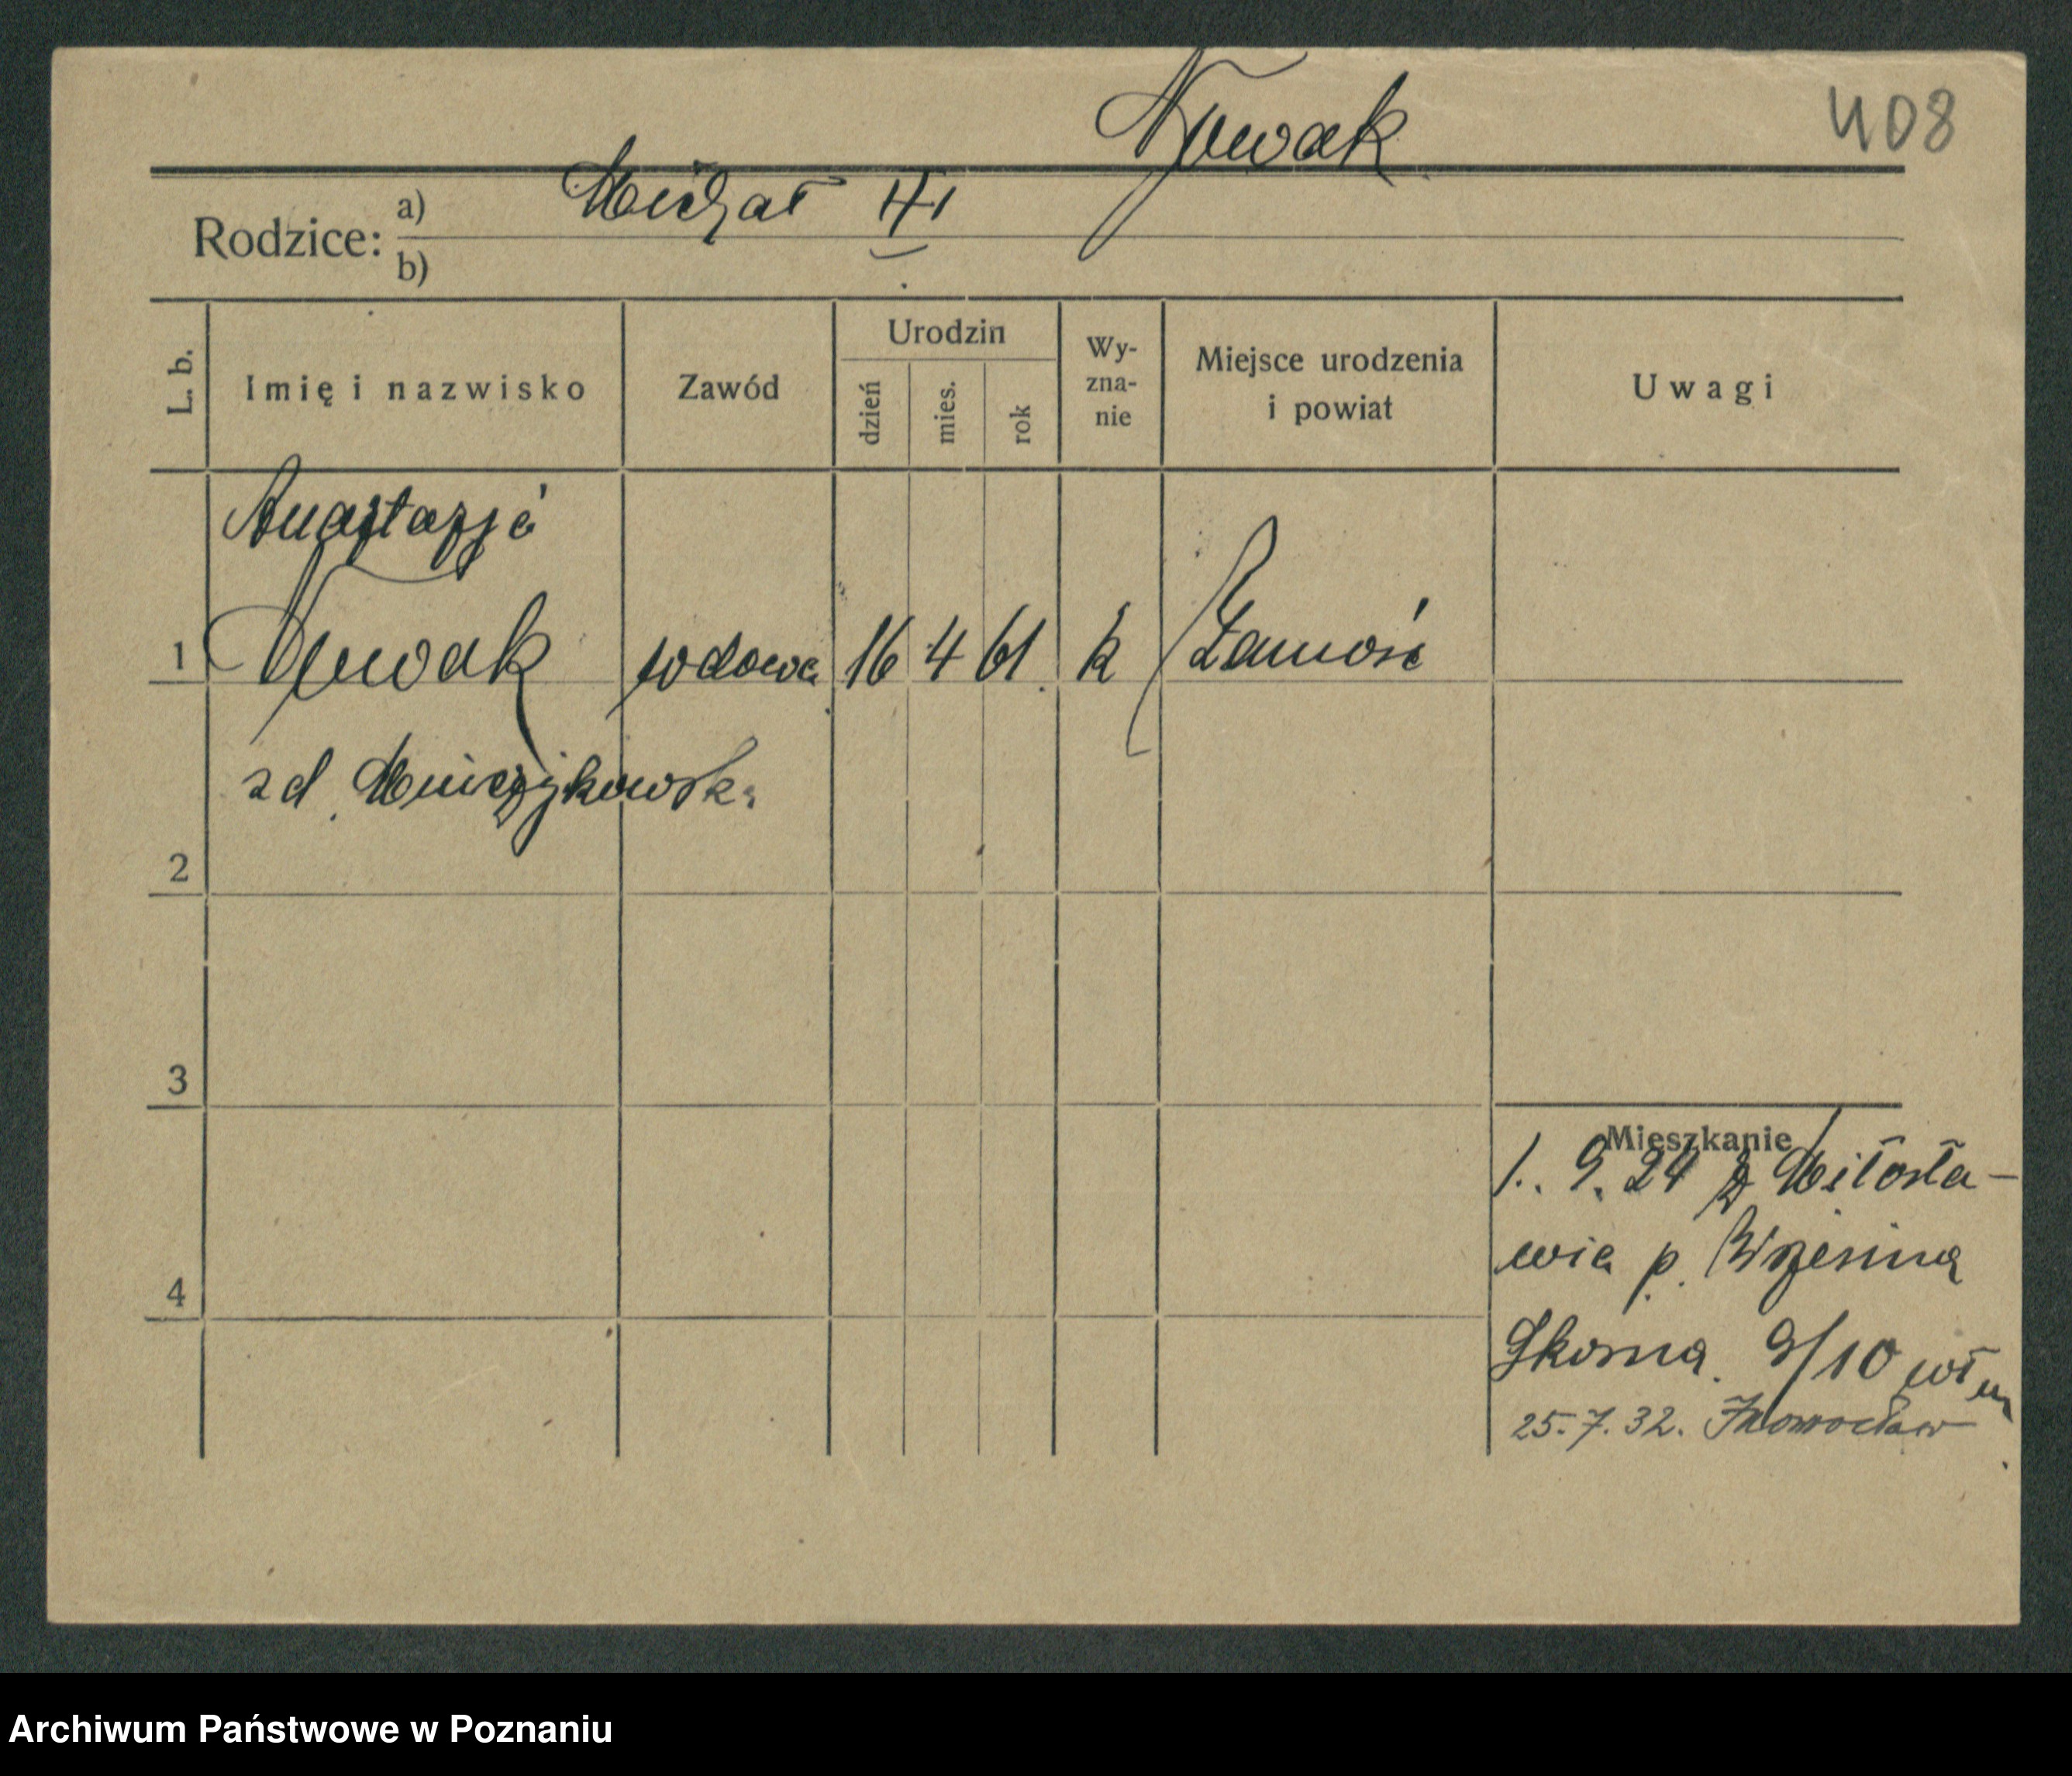 Nowak
408
Rodzice: a) Michał
b)
L. b.
Imię i nazwisko
Zawód
Urodzin
dzień
mies.
rok
Wy-
zna-
nie
Miejsce urodzenia
i powiat
Uwagi
Anastazja
1 Nowak wdowa 16 4 61. k Zamość
zd.
2
3
Mieszkanie
1. 9. 24 z Miłosła-
wia p. Września
9/10
4
25. 7. 32. Inowrocław
Archiwum Państwowe w Poznaniu